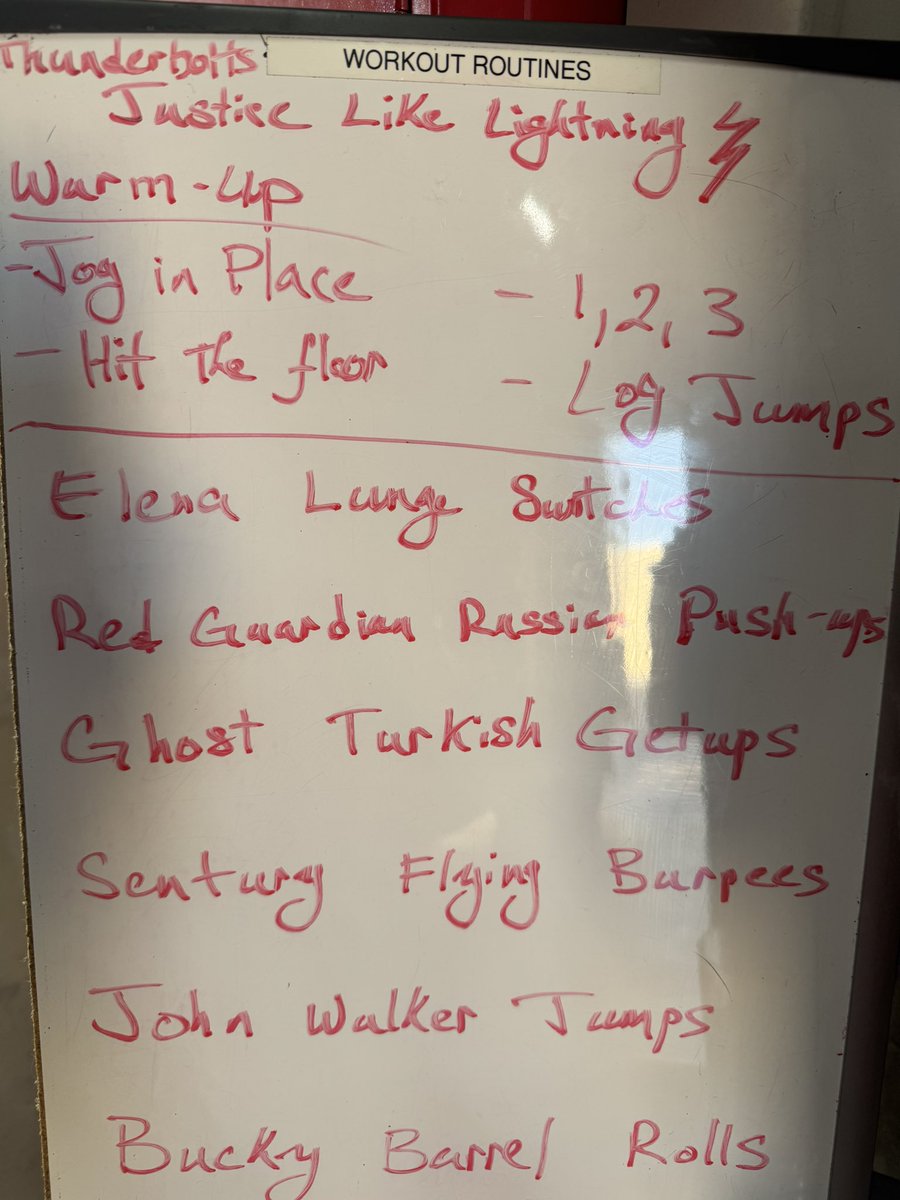 WORKOUT ROUTINES
Thunderbolts:
Justice Like Lightning
Warm-Up
- Jog in Place
- Hit the floor
- 1, 2, 3
- Log Jumps
Elena Lunge Switches
Red Guardian Russian Push-ups
Ghost Turkish Getups
Sentury Flying Burpees
John Walker Jumps
Bucky Barrel Rolls